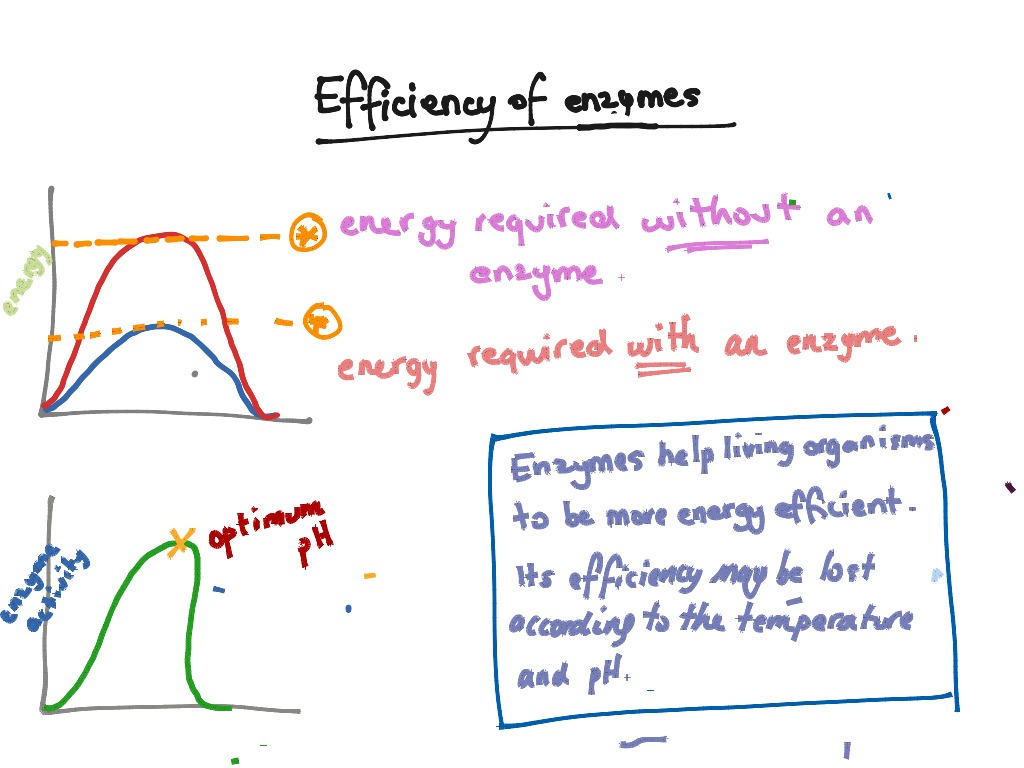 Efficiency of enzymes
energy required without an
enzyme
energy
energy required with an enzyme.
Enzymes help living organisms
to be more energy efficient.
Its efficiency may be lost
according to the temperature
and pH.
optimum
pH
enzyme
activity